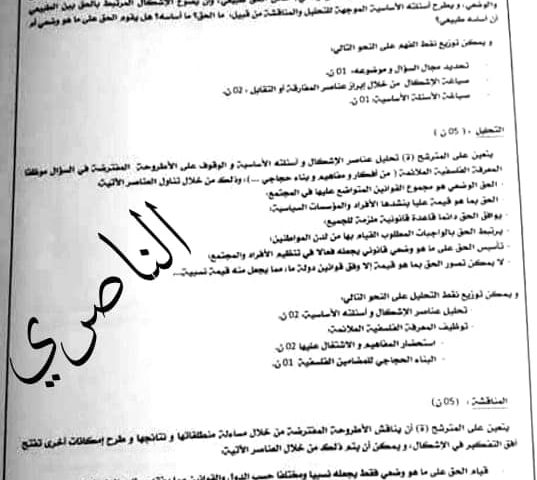 والوضعي، و يطرح أسئلته الأساسية الموجهة للتحليل والمناقشة من قبيل: ما الحق؟ ما أساسه؟ هل يقوم الحق على ما هو وضعي أم
أن أساسه طبيعي؟
و يمكن توزيع نقط الفهم على النحو التالي:
تحديد مجال السؤال و موضوعه: 01 ن.
صياغة الإشكال من خلال إبراز عناصر المفارقة أو التقابل: 02 ن.
صياغة الأسئلة الأساسية: 01 ن.
التحليل: (05 ن)
يتعين على المترشح (ة) تحليل عناصر الإشكال و أسئلته الأساسية و الوقوف على الأطروحة المفترضة في السؤال موظفا
المعرفة الفلسفية الملائمة ( من أفكار و مفاهيم و بناء حجاجي ...)، وذلك من خلال تناول العناصر الآتية:
- الحق الوضعي هو مجموع القوانين المتواضع عليها في المجتمع؛
- الحق بما هو قيمة عليا ينشدها الأفراد والمؤسسات السياسية؛
- يوافق الحق دائما قاعدة قانونية ملزمة للجميع؛
- يرتبط الحق بالواجبات المطلوب القيام بها من لدن المواطنين؛
- تأسيس الحق على ما هو وضعي قانوني يجعله فعالا في تنظيم الأفراد والمجتمع؛
- لا يمكن تصور الحق بما هو قيمة إلا وفق قوانين دولة ما، مما يجعل منه قيمة نسبية...
و يمكن توزيع نقط التحليل على النحو التالي:
تحليل عناصر الإشكال و أسئلته الأساسية: 02 ن.
توظيف المعرفة الفلسفية الملائمة:
استحضار المفاهيم و الاشتغال عليها 02 ن
البناء الحجاجي للمضامين الفلسفية 01 ن.
الناصري
المناقشة: (05 ن)
يتعين على المترشح (ة) أن يناقش الأطروحة المفترضة من خلال مساءلة منطلقاتها و نتائجها و طرح إمكانات أخرى تفتح
أفق التفكير في الإشكال، و يمكن أن يتم ذلك من خلال العناصر الآتية:
- قيام الحق على ما هو وضعي فقط يجعله نسبيا ومختلفا حسب الدول والقوانين